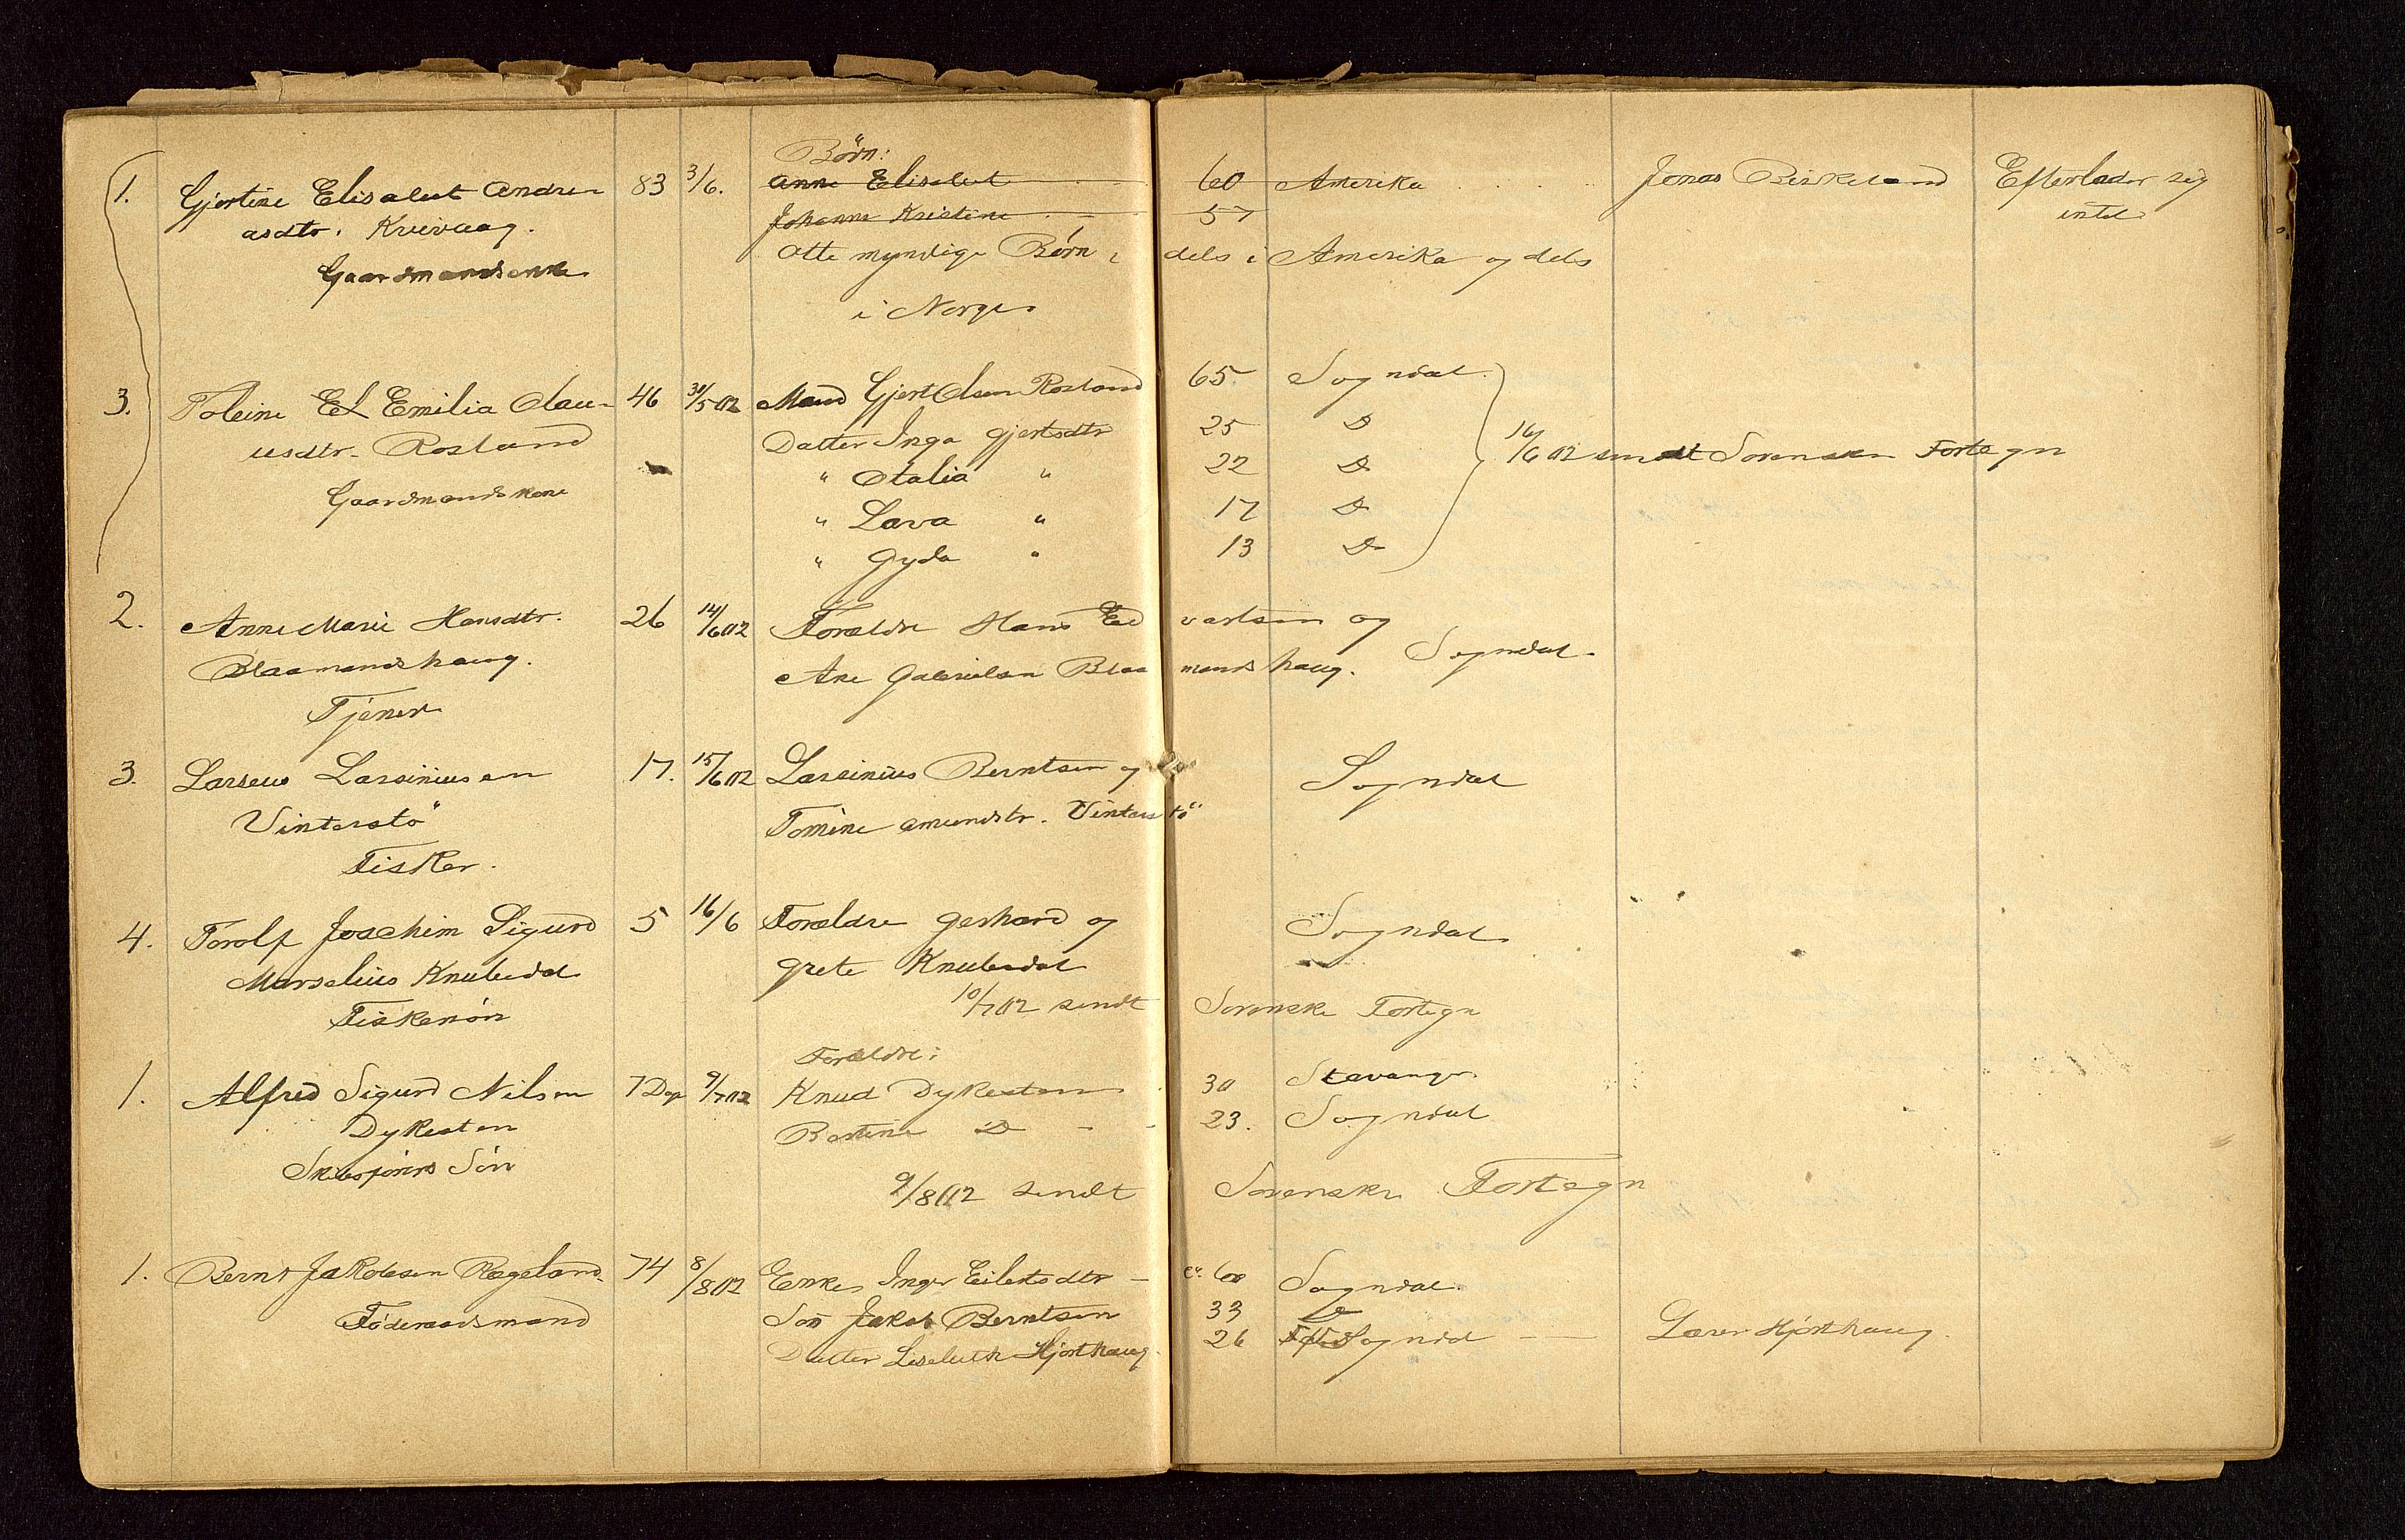 Börn:
1. Gjertine Elisabet Andre- 83 3/6. Anne Elisabet 60 Amerika Jonas Birkeland Efterlader sig
asdtr. Kvivaag. Johanne Kristine 57 intet
Gaardmandsenke Otte myndige Börn i dels i Amerika og dels
i Norge.
3. Toleine El Emilia Olau- 46 31/5 02 Mand Gjert Olsen Rosland 65 Sogndal.
usdtr. Rosland Datter Inga Gjertsdtr 25 D
Gaardmandskone " Otalia " 22 D 16/6 02 sendt Sorenskr. Fortegn
" Lava " 17 D
" Gyda " 13 D
2. Anne Marie Hansdtr. 26 14/6 02 Forældre Hans Edvartsen og
Blaamandshaug. Ane Gabrielsen Blaamandshaug. Sogndal
Tjener
3. Larseus Larsiniusen 17. 15/6 02 Larsinius Berntsen og Sogndal
Vinterstö Tomine Amundstr. Vinterstö
Fisker.
4. Torolf Joachim Sigurd 5 16/6 Forældre Gerhard og Sogndal
Marselius Knubedal Grete Knubedal
Fiskersön 10/7 02 sendt Sorenskr Fortegn
Forældre:
1. Alfred Sigurd Nilsen 7 Dge 9/7 02 Knud Dykesten 30 Stavanger
Dykesten Bertine D - - 23. Sogndal
Skibsförers Sön
9/8 02 sendt Sorenskr. Fortegn
1. Bernt Jakobsen Rægeland. 74 8/8 02 Enke Inger Eilertsdtr - c. 60 Sogndal.
Föderaadsmand Sön Jakob Berntsen 33 D
Datter Liseluth Hjorthaug. 26 Sogndal Lærer Hjorthaug.